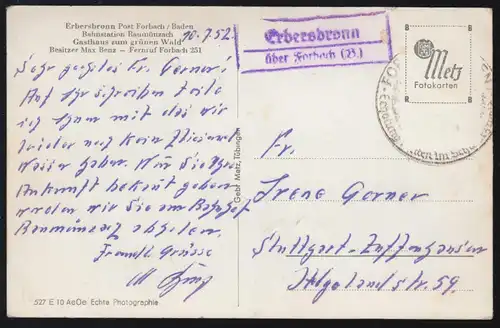 Erbersbronn Post Forbach / Baden
Bahnstation Raumünzach
Gasthaus zum grünen Wald
Besitzer Max Benz – Fernruf Forbach 251
10.7.52.
Sehr geehrtes Fr. Gerner!
Auf Ihr Schreiben teile
ich Ihnen mit das wir
leider noch kein fliesend
Wasser haben. Wen Sie Ihre
Ankunft bekant geben
werden wir Sie am Bahnhof
Raumünzach abholen.
Freundl Grüsse
M Benz
527 E 10 AeOe Echte Photographie
Gebr. Metz, Tübingen
Erbersbronn
über Forbach (B.)
Metz
Fotokarten
Fr.
Irene Gerner
Stuttgart-Zuffenhausen
Helgolandstr. 59.